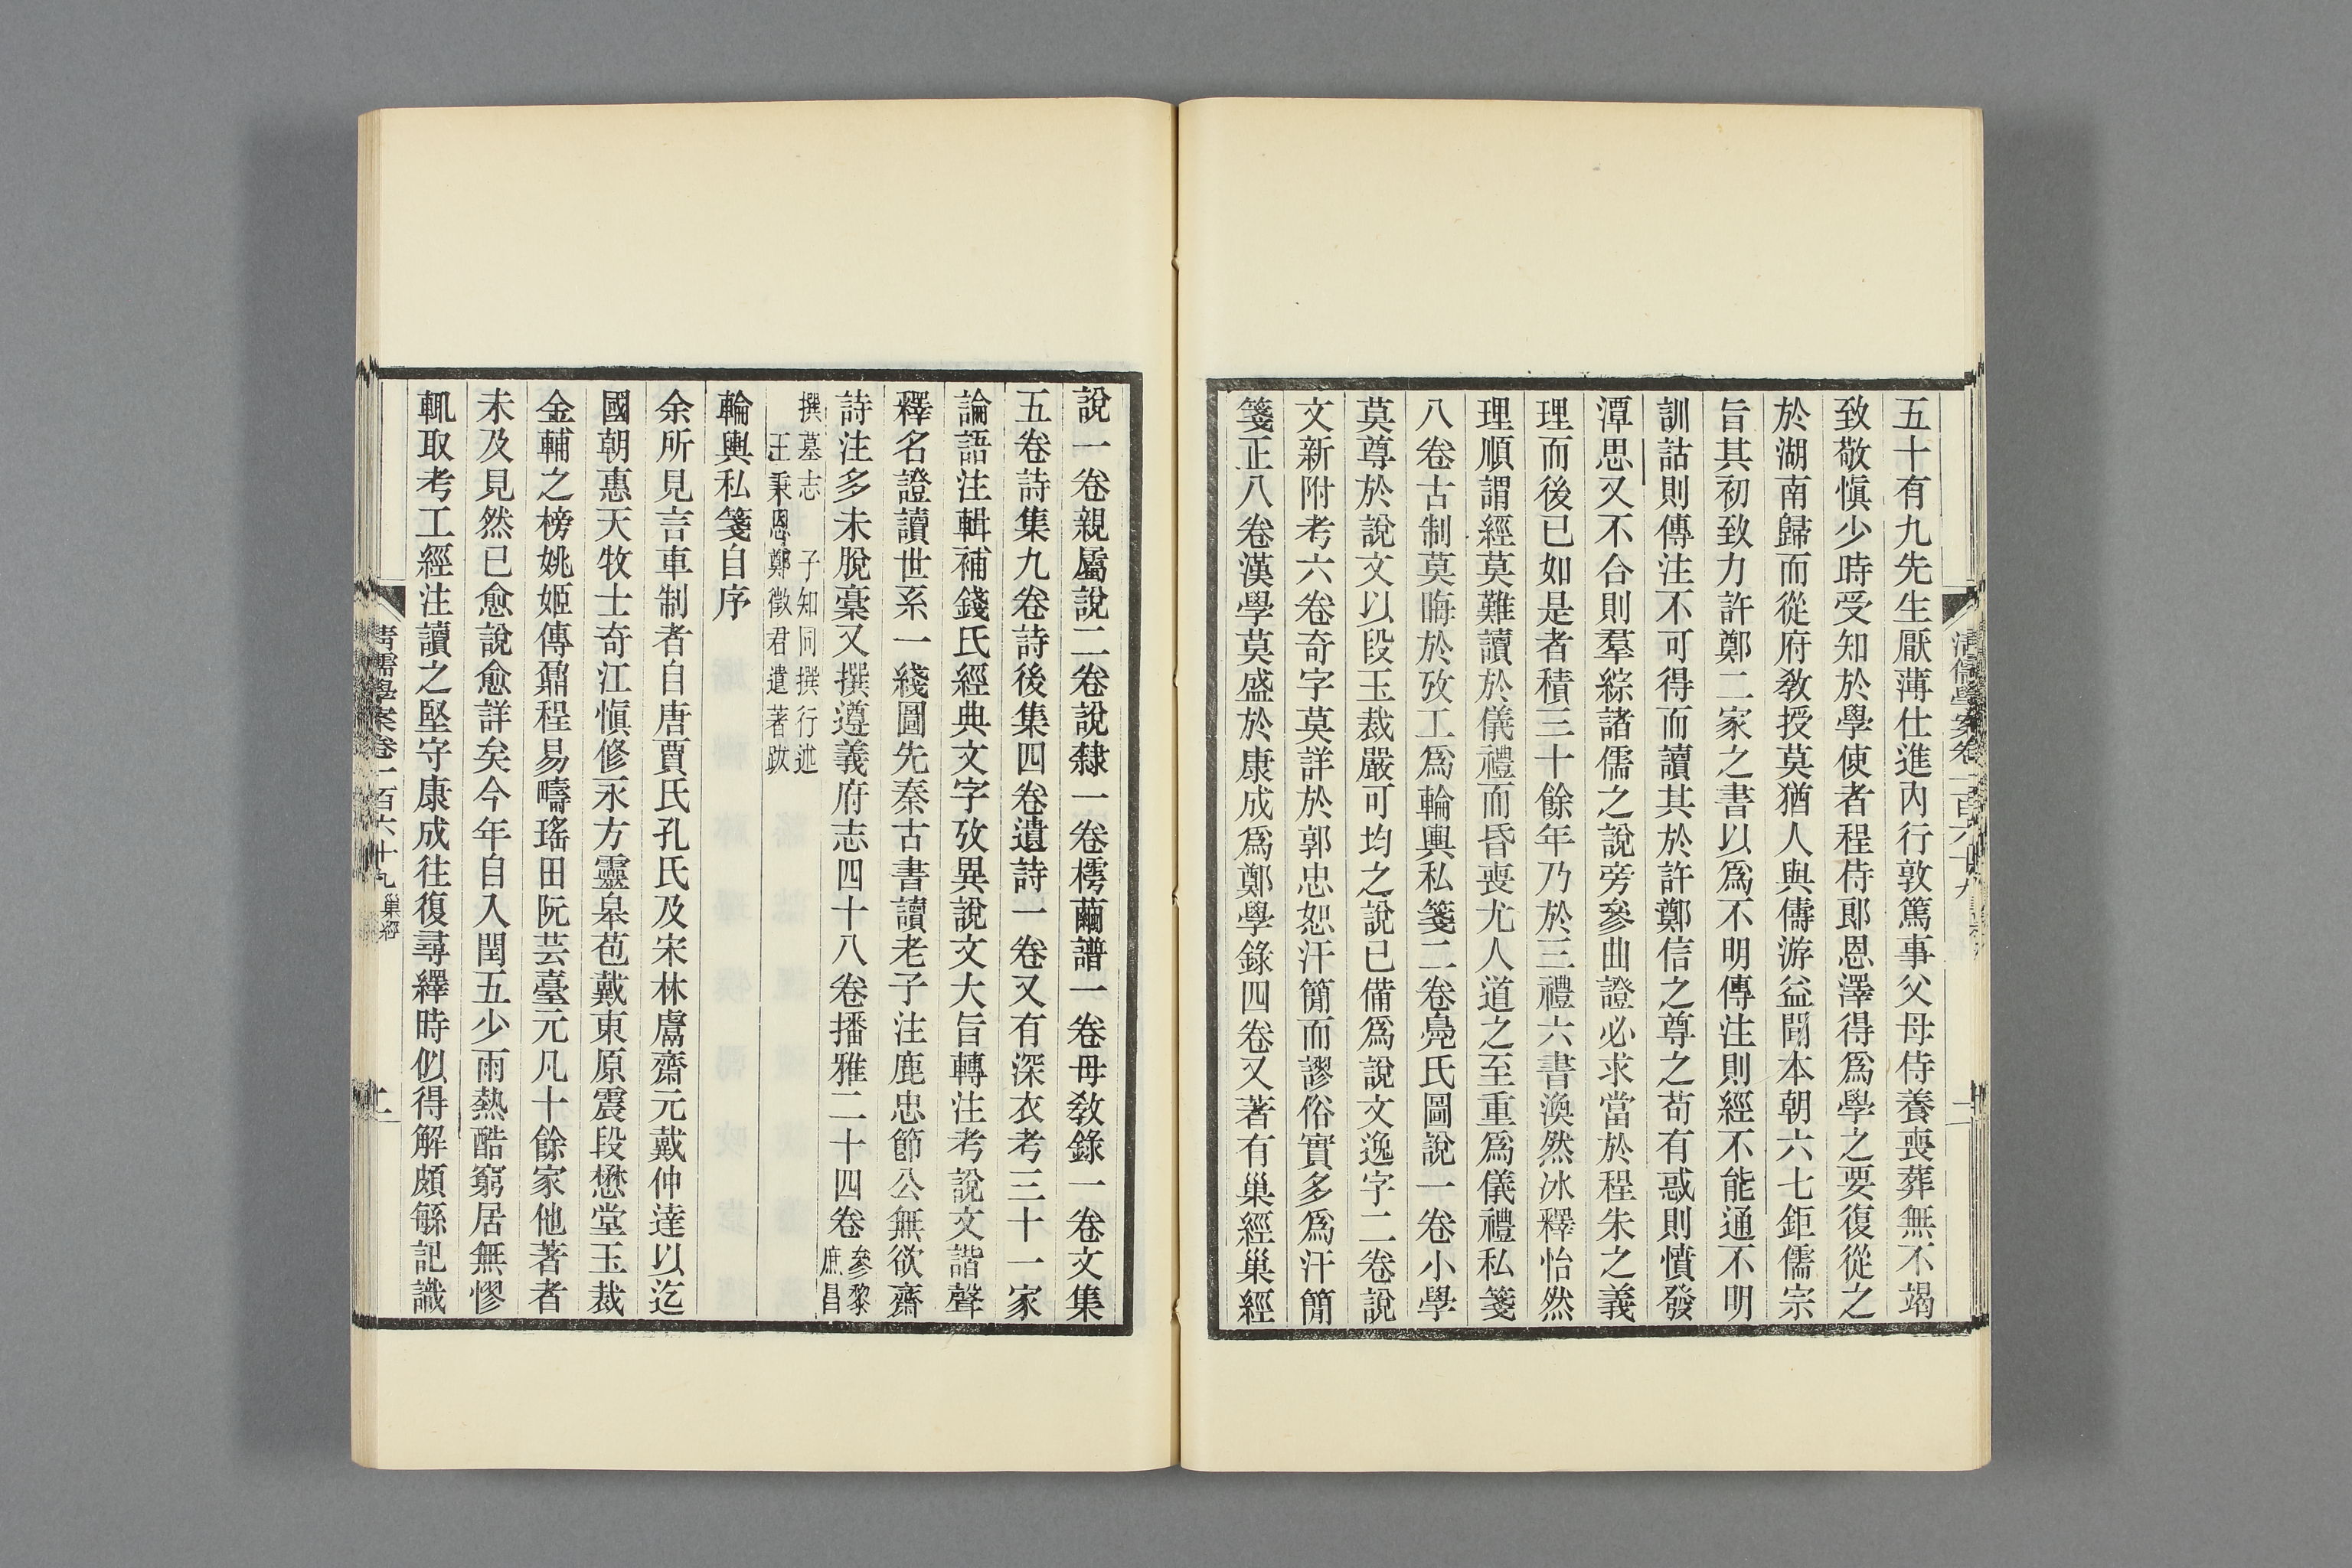 五十有九先生厭薄仕進內行敦篤事父母侍養喪葬無不竭
致敬愼少時受知於學使者程侍郎恩澤得爲學之要復從之
於湖南歸而從府敎授莫猶人與儔游益聞本朝六七鉅儒宗
旨其初致力許鄭二家之書以爲不明傳注則經不能通不明
訓詁則傳注不可得而讀其於許鄭信之尊之苟有惑則憤發
潭思又不合則羣綜諸儒之說旁參曲證必求當於程朱之義
理而後已如是者積三十餘年乃於三禮六書渙然冰釋怡然
理順謂經莫難讀於儀禮而昏喪尤人道之至重爲儀禮私箋
八卷古制莫晦於攷工爲輪輿私箋二卷鳧氏圖說一卷小學
莫尊於說文以段玉裁嚴可均之說已備爲說文逸字二卷說
文新附考六卷奇字莫詳於郭忠恕汗簡而謬俗實多爲汗簡
箋正八卷漢學莫盛於康成爲鄭學錄四卷又著有巢經巢經
說一卷親屬說二卷說隸一卷樗繭譜一卷母敎錄一卷文集
五卷詩集九卷詩後集四卷遺詩一卷又有深衣考三十一家
論語注輯補錢氏經典文字攷異說文大旨轉注考說文諧聲
釋名證讀世系一綫圖先秦古書讀老子注鹿忠節公無欲齋
詩注多未脫藁又撰遵義府志四十八卷播雅二十四卷參黎
庶昌
撰墓志 子知同撰行述
王秉恩鄭徵君遺著跋
輪輿私箋自序
余所見言車制者自唐賈氏孔氏及宋林鬳齋元戴仲達以迄
國朝惠天牧士奇江愼修永方靈皋苞戴東原震段懋堂玉裁
金輔之榜姚姬傳鼐程易疇瑤田阮芸臺元凡十餘家他著者
未及見然已愈說愈詳矣今年自入閏五少雨熱酷窮居無憀
輒取考工經注讀之堅守康成往復尋繹時似得解頗緜記識
清儒學案卷一百六十九 巢經
二